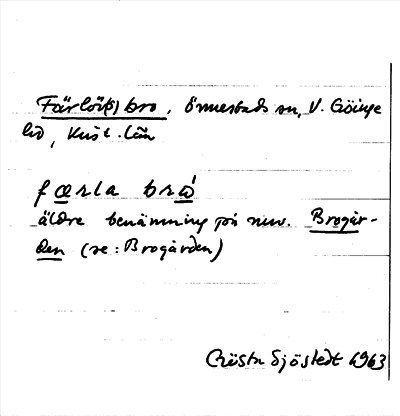 Färlöv(s) bro, Önnestads sn, V. Göinge
hd, Krist. län
færla brω
äldre benämning på nuv. Brogår-
den (se: Brogården)
Gösta Sjöstedt 1963